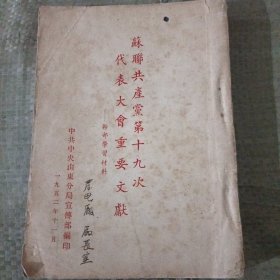 蘇聯共產黨第十九次
代表大會重要文獻
幹部學習材料
中共中央山東分局宣傳部編印
一九五二年十一月